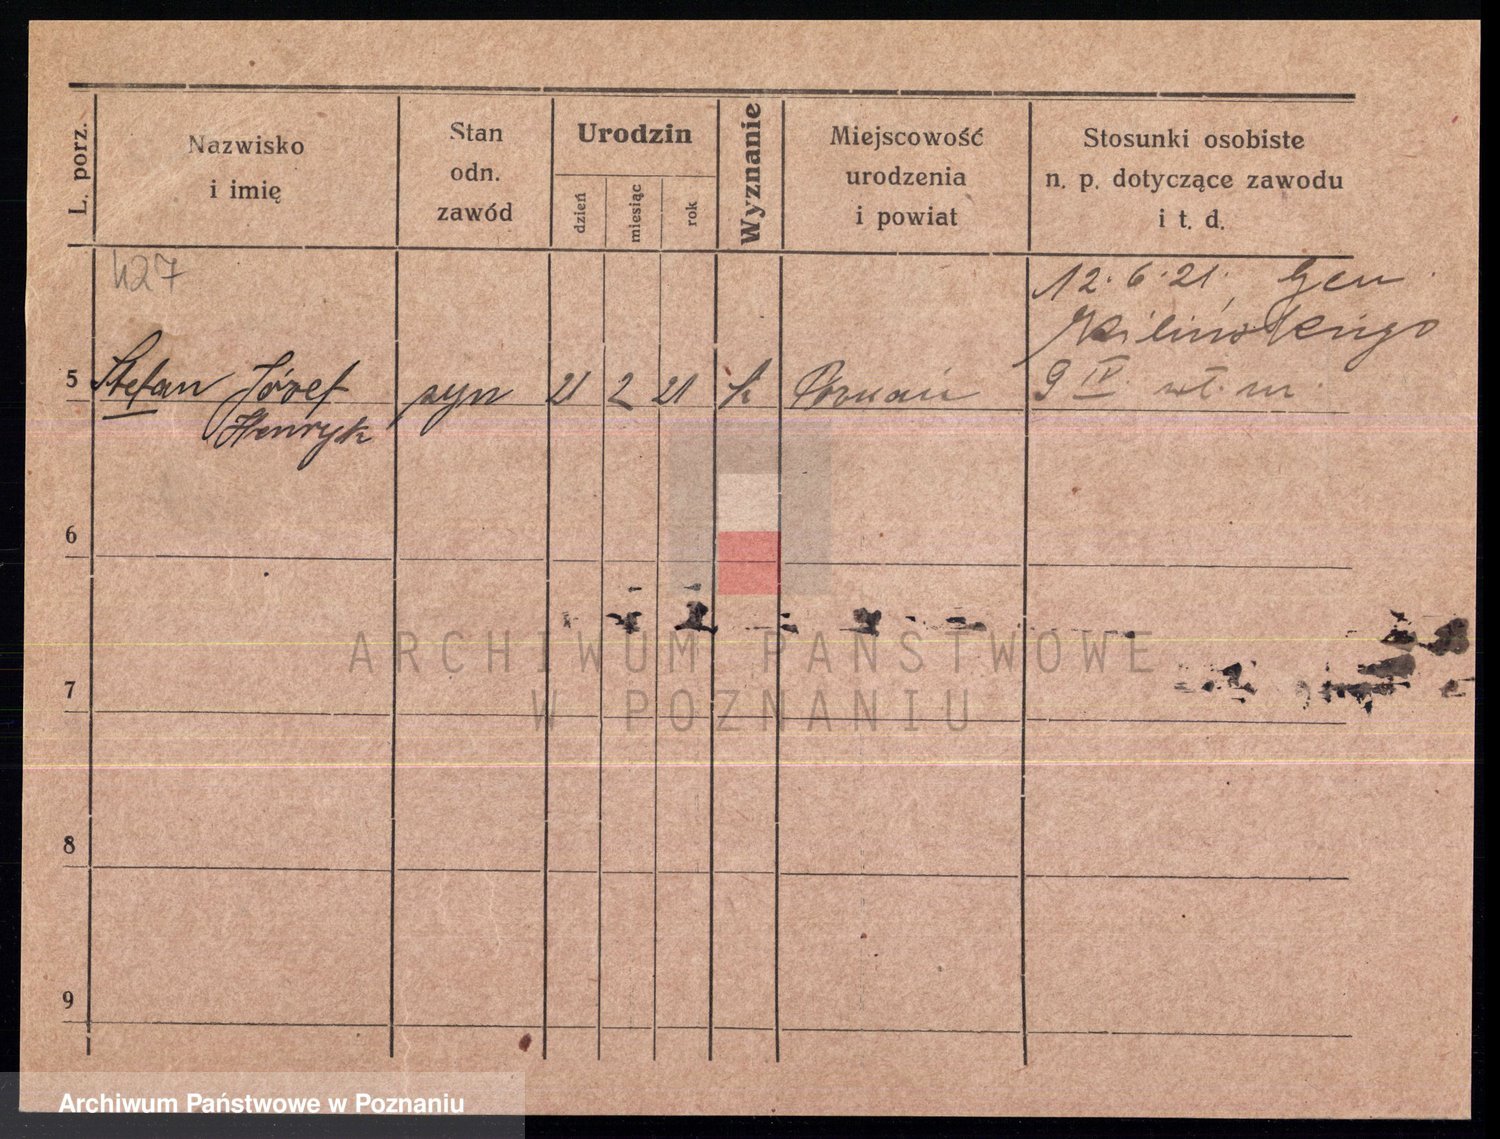 L. porz.
Nazwisko
i imię
Stan
odn.
zawód
Urodzin
dzień
miesiąc
rok
Wyznanie
Miejscowość
urodzenia
i powiat
Stosunki osobiste
n. p. dotyczące zawodu
i t. d.
427
12. 6. 21.
Kilińskiego
5 Stefan Józef syn 21 2 21 k Poznań 9 IV.
Henryk
6
ARCHIWUM PAŃSTWOWE
7
W POZNANIU
8
9
Archiwum Państwowe w Poznaniu